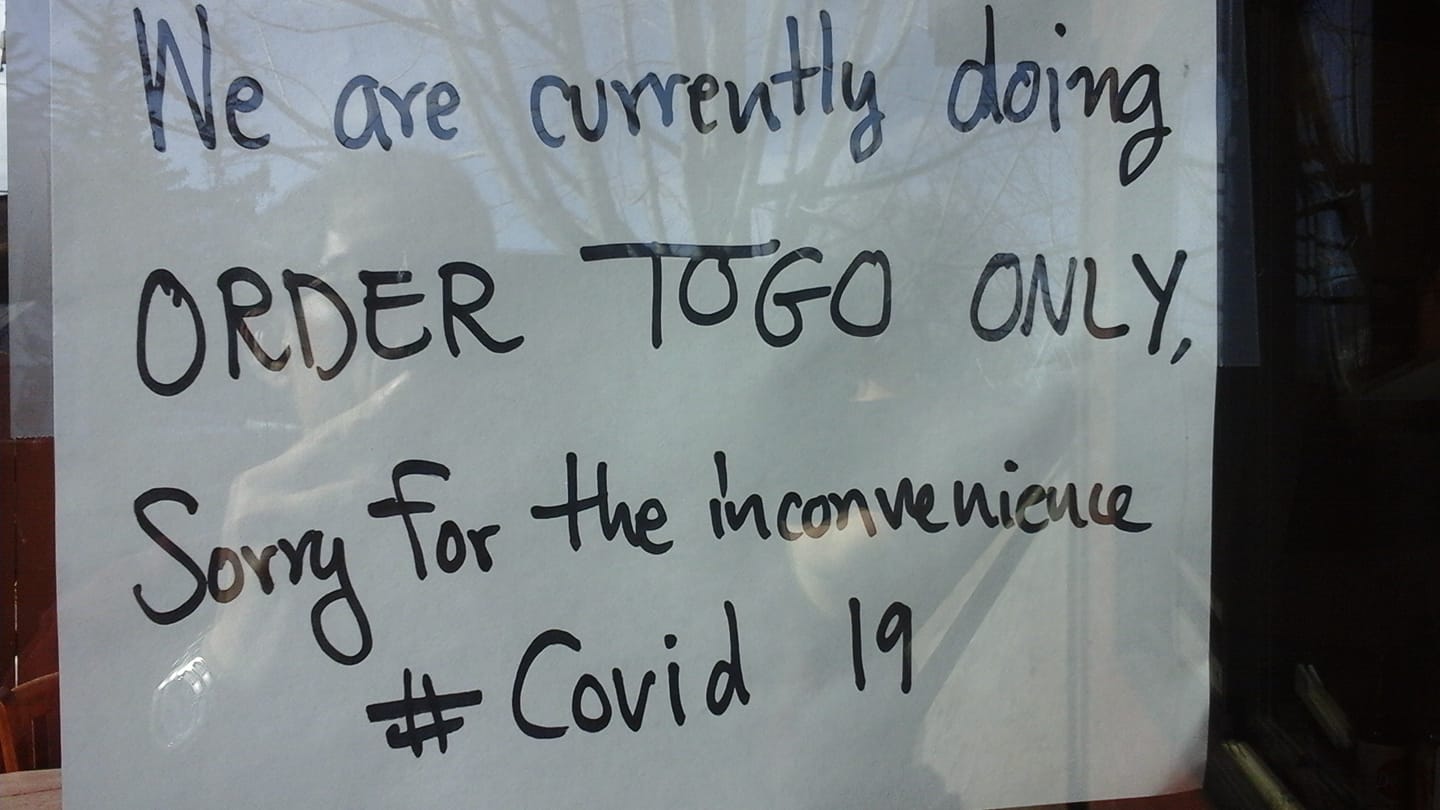 We are currently doing
ORDER TOGO ONLY,
Sorry for the inconvenience
# Covid 19